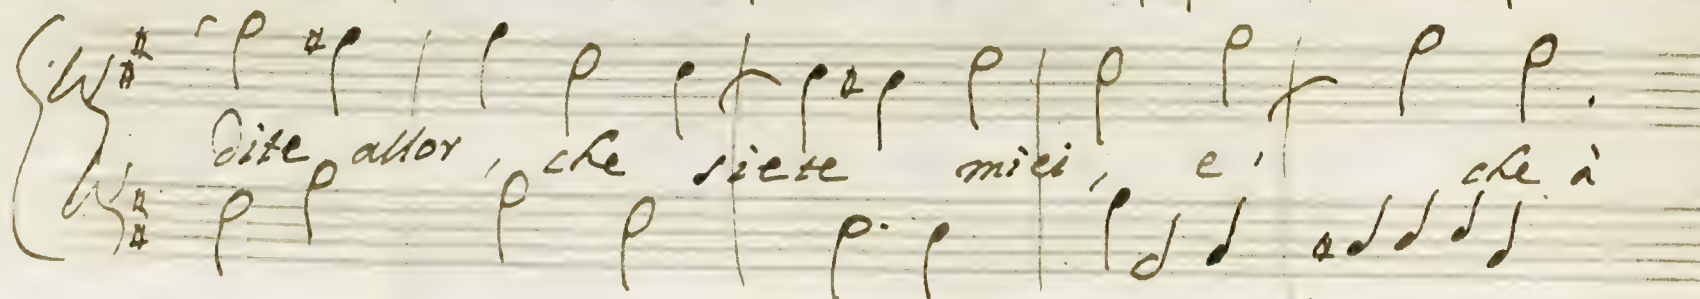 dite allor, che siete miei, e' che à